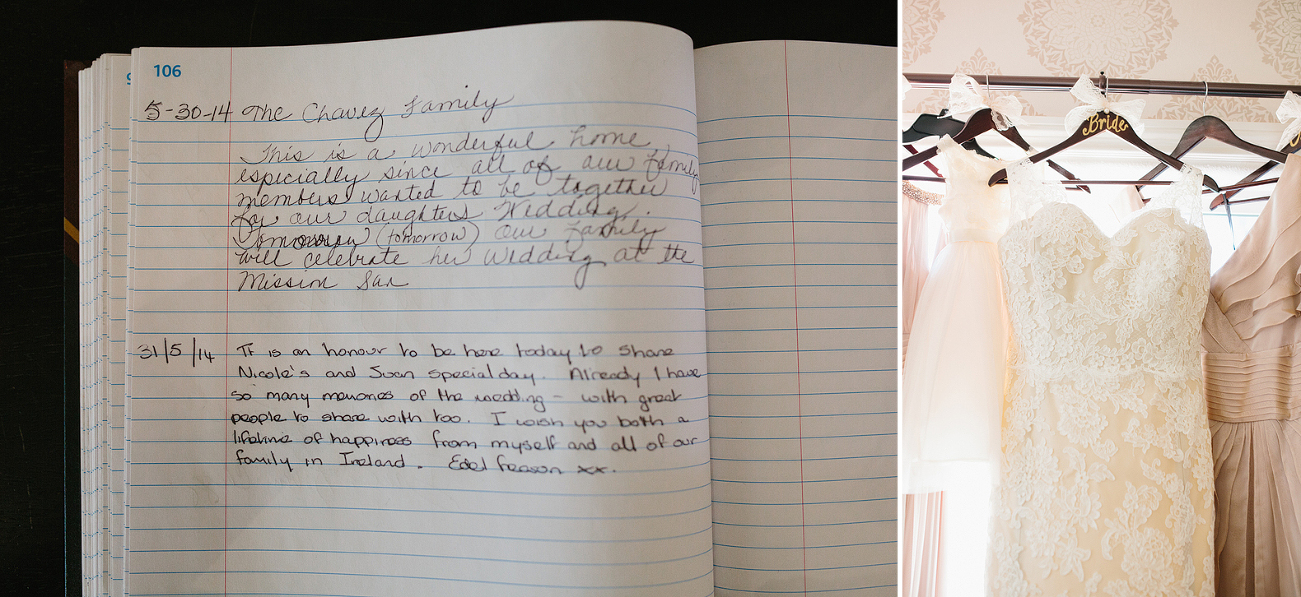 106
5-30-14 The Chavez Family
This is a wonderful home,
especially since all of our family
members wanted to be together
for our daughters Wedding.
(tomorrow) our family
will celebrate her wedding at the
Mission San
31/5/14 It is an honour to be here today to share
Nicole's and Juan special day. Already I have
so many memories of the wedding - with great
people to share with too. I wish you both a
lifetime of happiness from myself and all of our
family in Ireland. Edel xx.
Bride